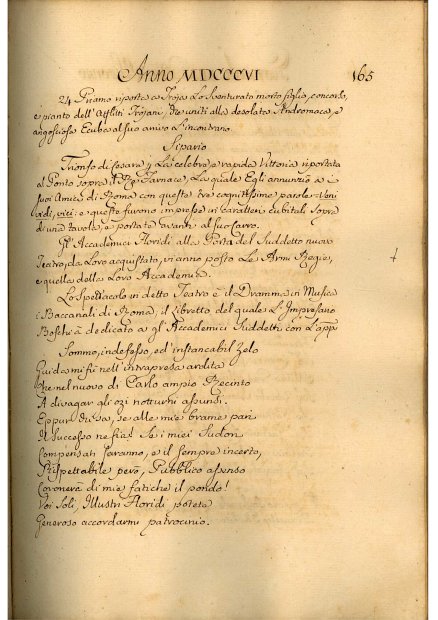 Anno MDCCCVI 165
24 Priamo riporta a Troja Lo Sventurato morto figlio, concorso,
e pianto dell'Afflitti Trojani, che uniti alla desolata Andromaca, e
angosciosa Ecuba al suo arrivo L'incontrano
Sipario
Trionfo di Cesare p La celebre e rapida Vittoria riportata
al Ponto sopra il Re Farnace, La quale Egli annunziò a i
suoi Amici di Roma con queste tre cognitissime parole: Veni
vidi, vici: e queste furono impresse in Caratteri cubitali sopra
d'una tavola, e portate davanti al suo Carro.
Gl'Accademici Floridi alla Porta del Suddetto nuovo
Teatro, da Loro acquistato, vi anno posto Le Armi Regie,
e quella della Loro Accademia.
Lo Spettacolo in detto Teatro è il Dramma in Musica
i Baccanali di Roma, il Libretto del quale L'Impresario
Boschi à dedicato a gl'Accademici Suddetti con L'app
Sommo, indefesso, ed'instancabil Zelo
Guidami fu nell'intrapresa ardita
Che nel nuovo di Carlo ampio Recinto
A divagar gli ozi notturni assunsi.
Eppur chi sa, se alle mie brame pari
Il successo ne fia! Se i miei Sudori
Compensati saranno, e il sempre incerto,
Rispettabile però, Pubblico assenso
Coronerà di mie fatiche il pondo!
Voi Soli, Illustri Floridi potete
Generoso accordarmi patrocinio.